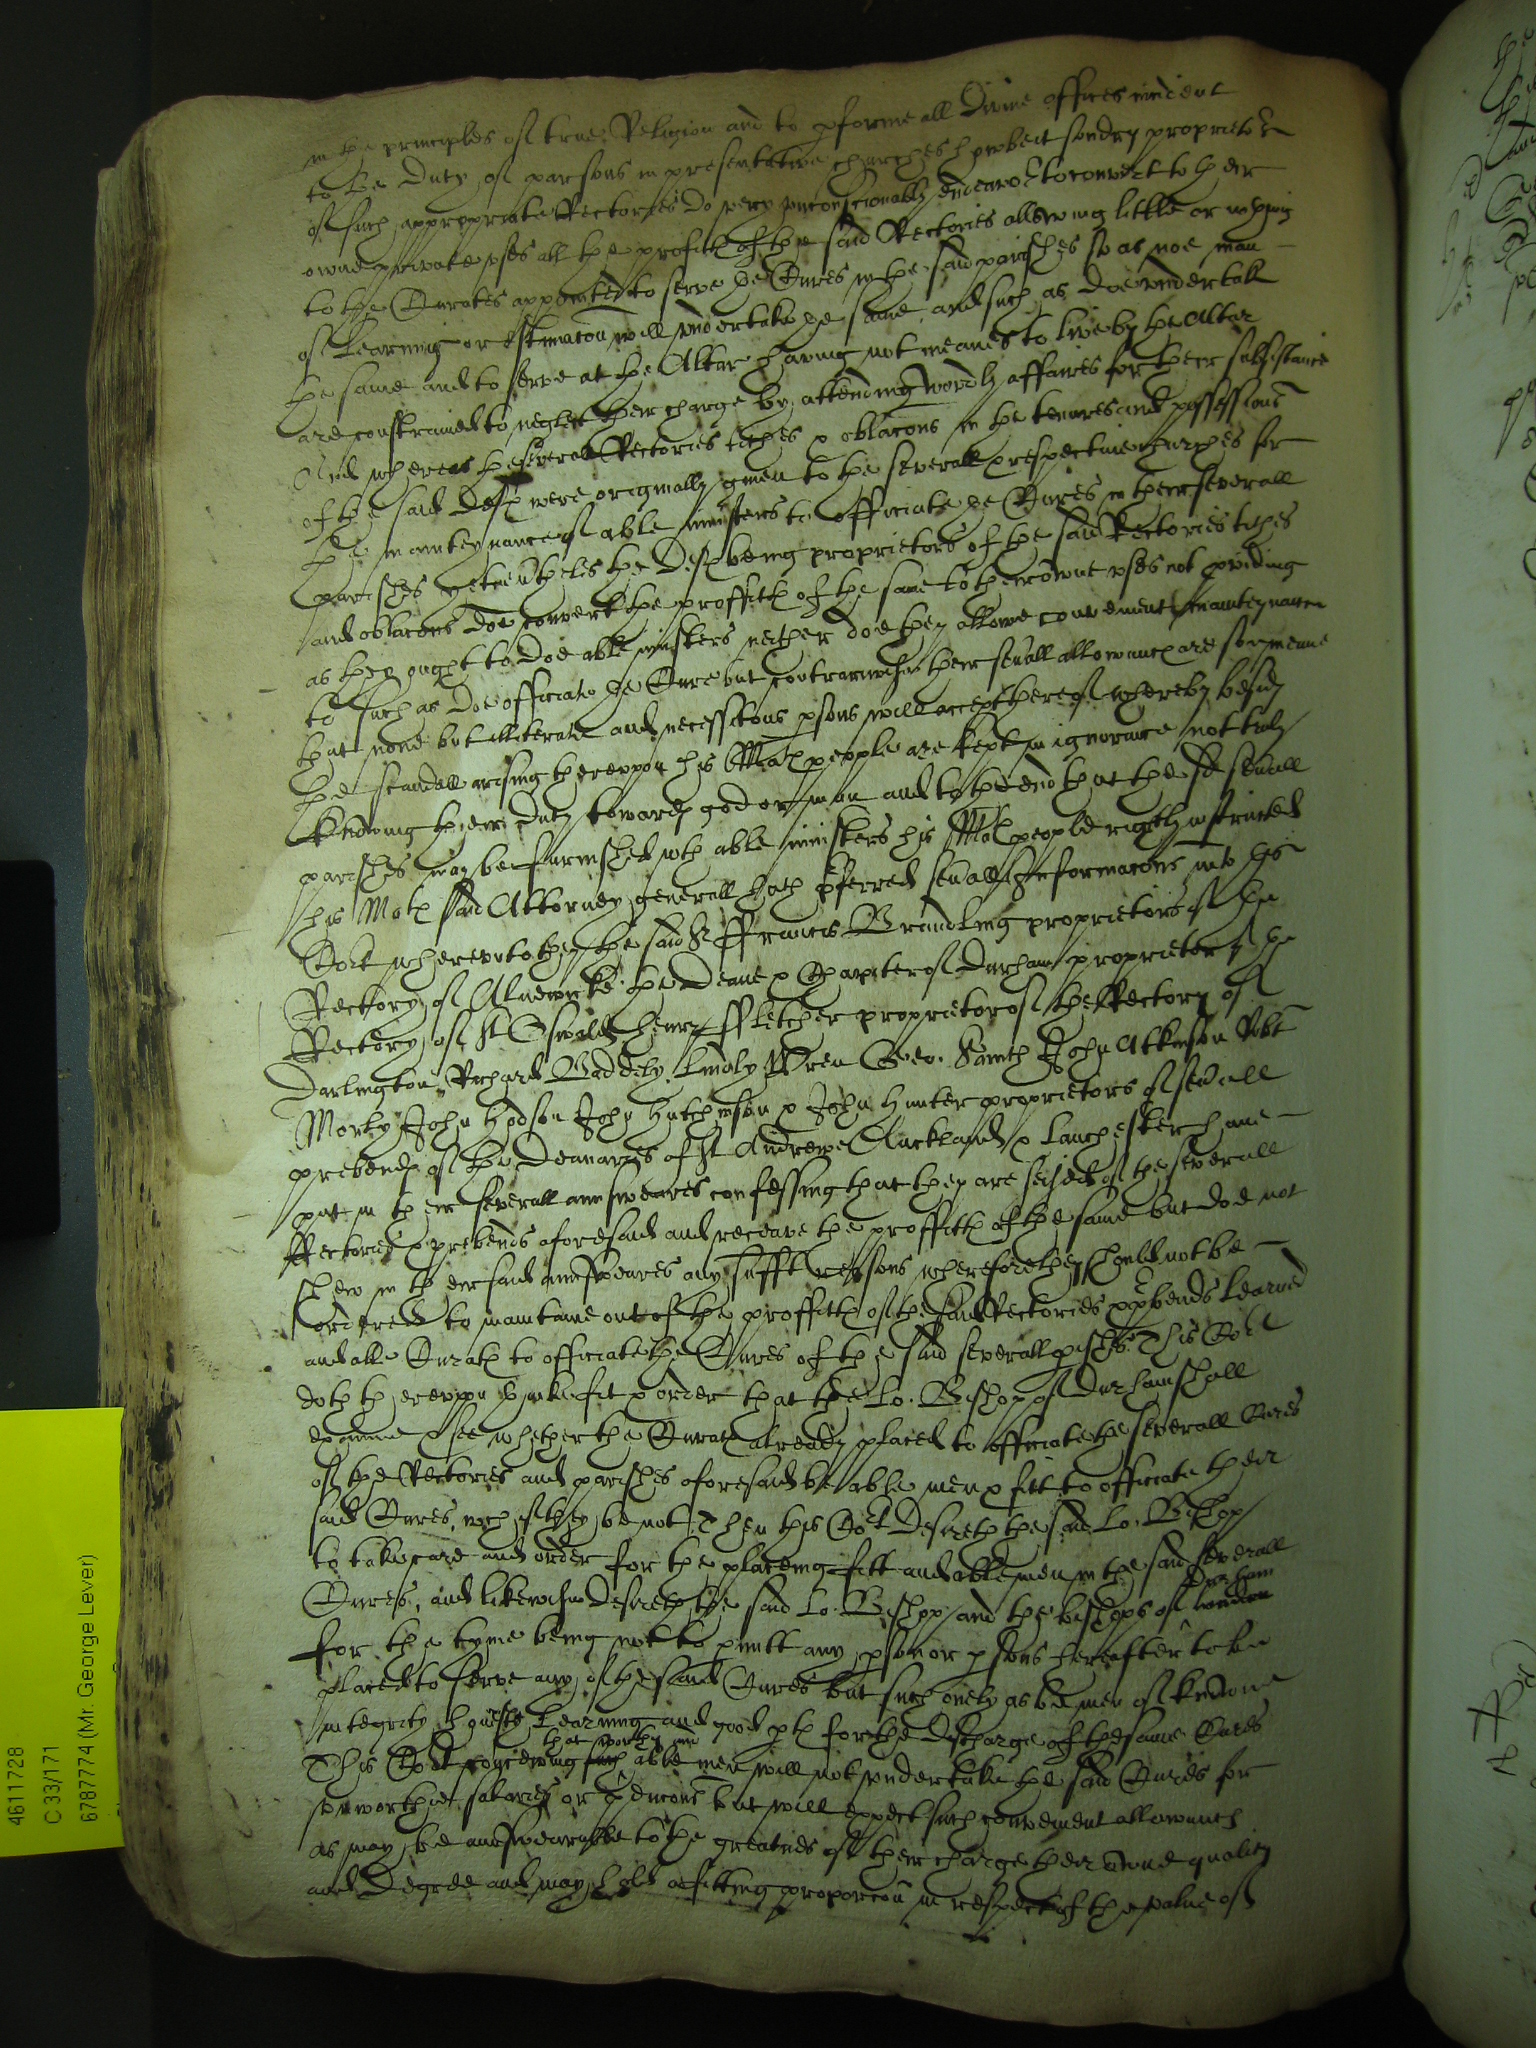 in the principles of true Religion and to pforme all Divine offices incident
to the Duty of parsons in presentative churches howbeit sondry proprietors
of such appropriate Rectories do very unconscionably endeavor to convert to their
owne private uses all the profitts of the said Rectories allowing little or nothing
to the Curates appointed to serve the Cures in the said parishes so as noe man
of learning or estimacon will undertake the same and such as doe undertake
the same and to serve at the Altar having not meanes to live by the Altar
are constrained to neglect their charge by attending wordly affaires for their subsistance
And whereas the severall Rectories tithes & oblacons in the tenures and possessions
of the said Defts were originally given to the severall & respective churches for
the mainteynance of able ministers to officiate the Cures in their severall
parishes yet nevtheles the Defts being proprietors of the said Rectories tithes
and oblacons doe convert the proffitts of the same to their owne uses not pviding
as they ought to doe able ministers neither doe they allowe convenient mainteynance
to such as doe officiate the Cure but contrariwise their sevall allowances are soe meane
that none but illiterate and necessitous psons will accept thereof whereby besids
the scandall arising thereuppon his Mats people are kept in ignorance not truly
knowing their duty towards god or man and to the end that the sd sevall
parishes may be furnished wth able ministers his Mats people rightly instructed
his Mats said Attorney generall hath pferred sevall Informacons into this
Cort whereunto they the said Sr ffrancis Brandling proprietors of the
Rectory of Alnewicke the Deane & Chapiter of Durham proprietor of the
Rectory of St Oswalds henry ffletcher proprietor of the Rectory of
Darlington Richard Baddely Lindly Wren Geo. Smith John Atkinson Robt
Morley John Hodson John Hutchinson & John Hunter proprietors of sevall
prebends of the Deanaryes of St Andrewe Auckland & Lanchester have
put in their severall answeares confessing that they are seised of the severall
Rectories & prebends aforesaid and receave the proffitts of the same but doe not
shew in their said answeares any sufft reasons wherefore they should not be
ordered to maintaine out of the proffitts of the said Rectories & pbends learned
and able Curats to officiate the Cures of the said severall pishes. This Cort
doth thereuppon thinke fit & order that the Lo. Bishopp of Durham shall
examine & see whether the Curats already placed to officiate the severall Cures
of the Rectories and parishes aforesaid be able men & fitt to officiate their
said Cures, wch if they be not Then this Cort desireth the said Lo. Bishop
to take care and order for the placeing fitt and able men in the said severall
Cures, and likewise desireth the said Lo. Bishopp and the bishops of Durham
for the tyme being not to pmitt any pson or psons hereafter to be
placed to serve any of the said Cures but such onely as be men of knowne
integrity honesty Learning and good pts for the discharge of the same Cures
This Cort conceiveing that worthy and able men will not undertake the said Cures for
unworthie salaries or but will expect such convenient allowances
as may be answearable to the greatnes of their charge their owne quality
and Degree and may hold a fitting proporcon in respect of the value of
4611728
C 33/171
6787774 (Mr. George Lever)